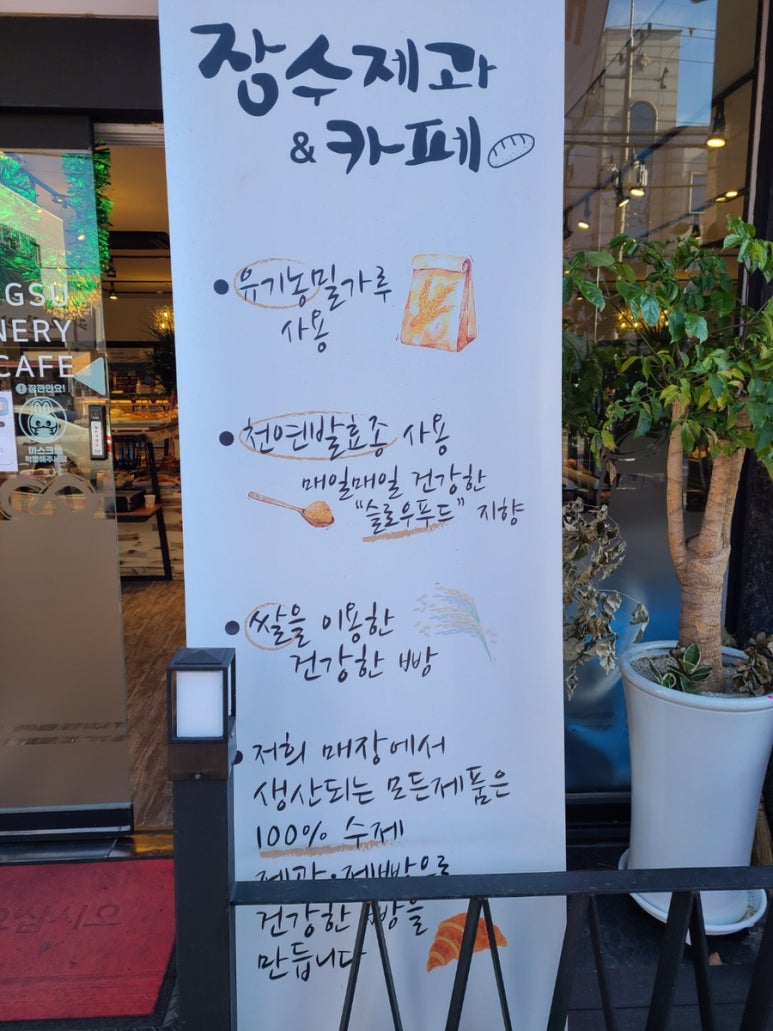 장수제과
& 카페
유기농밀가루
사용
천연발효종 사용
매일매일 건강한
"슬로우푸드" 지향
쌀을 이용한
건강한 빵
저희 매장에서
생산되는 모든제품은
100% 수제
제과·제빵으로
건강한 빵을
만듭니다
GSU
NERY
CAFE
잠깐만요!
마스크를
착용해주세요
으십시오